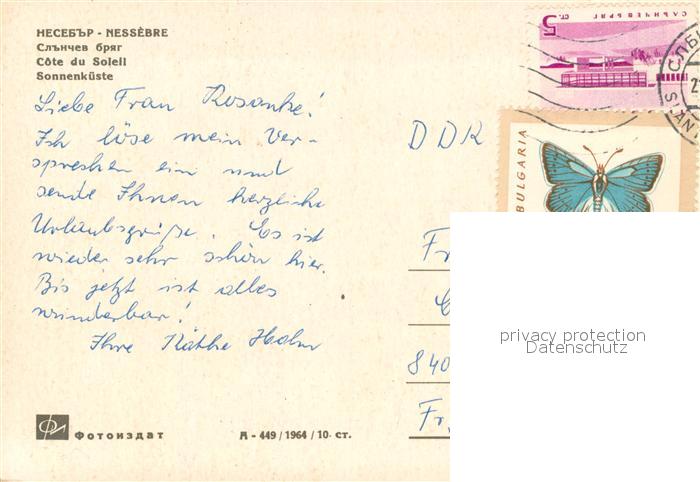 НЕСЕБЪР - NESSÈBRE
Слънчев бряг
Côte du Soleil
Sonnenküste
Liebe Frau Rosanke!
Ich löse mein Ver-
sprechen ein und
sende Ihnen herzliche
Urlaubsgrüße. Es ist
wieder sehr schön hier.
Bis jetzt ist alles
wunderbar!
Ihre Käthe Hahn
Фотоиздат
А - 449 / 1964 / 10- ст.
5 ст.
СЛЪНЧЕВ БРЯГ
BULGARIA
DDR
Fr
840
Fr
privacy protection
Datenschutz